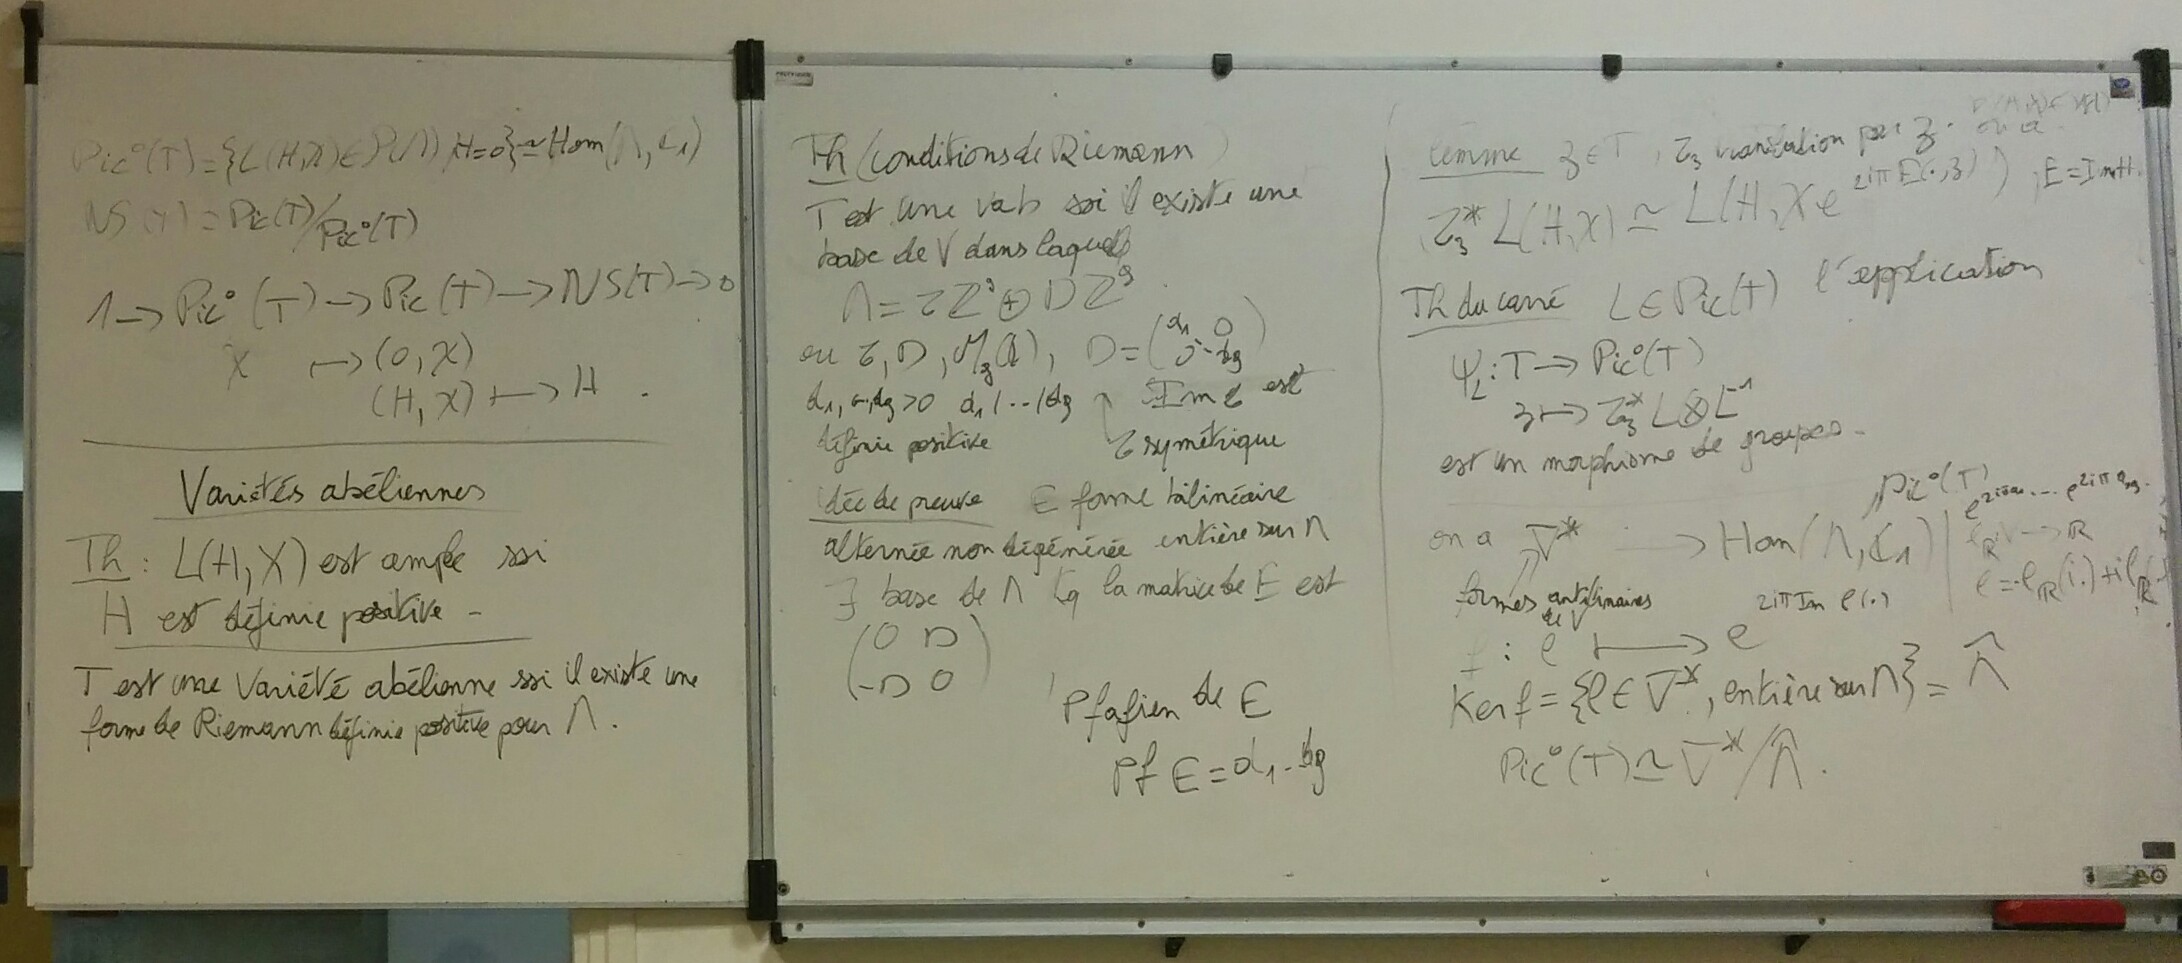 Pic°(T) = {L(H,χ) ∈ P(Λ), H=0} ≃ Hom(Λ, ℂ₁)
NS(T) = Pic(T)/Pic°(T)
1 → Pic°(T) → Pic(T) → NS(T) → 0
χ ↦ (0,χ)
(H,χ) ↦ H.
Variétés abéliennes
Th : L(H,χ) est ample ssi
H est définie positive -
T est une variété abélienne ssi il existe une
forme de Riemann définie positive pour Λ.
Th (conditions de Riemann)
T est une vab ssi il existe une
base de V dans laquelle
Λ = τℤ^g ⊕ Dℤ^g.
ou τ, D, M_g(ℂ), D = (d₁ 0
0 dg)
d₁, .., dg > 0 d₁ | .. | dg Im τ est
définie positive τ symétrique
idée de preuve E forme bilinéaire
alternée non dégénérée entière sur Λ
∃ base de Λ tq la matrice de E est
(0 D
-D 0)
Pfafien de E
Pf E = d₁..dg
Lemme z ∈ T, τ_z translation par z. on a
τ_z* L(H,χ) ≃ L(H, χe^{2iπ E(·,z)}), E = Im H.
Th du carré L ∈ Pic(T) l'application
ψ_L : T → Pic°(T)
z ↦ τ_z* L ⊗ L⁻¹
est un morphisme de groupes -
Pic°(T)
on a V̄* → Hom(Λ, ℂ₁)
formes antilinéaires
de V
f : ℓ ↦ e^{2iπ Im ℓ(·)}
ℓ_ℝ : V → ℝ
ℓ = -ℓ_ℝ(i.) + iℓ_ℝ(
Ker f = {ℓ ∈ V̄*, entière sur Λ} = Λ̂
Pic°(T) ≃ V̄*/Λ̂.